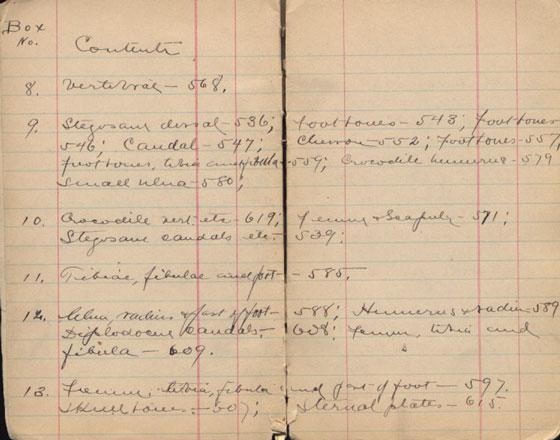 Box
No.
Contents
8. Vertebrae — 568.
9. Stegosaur dorsal - 536; footbones - 543; footbones
546; Caudal - 547; Chevron 552; footbones - 557,
footbones, tibia and fibula - 559; Crocodile humerus - 579
Small ulna - 580;
10. Crocodile vert. etc - 619; Femur & Scapula - 571;
Stegosaur caudals etc. - 539;
11. Tibiae, fibulae and foot - 585.
12. Ulna, radius & part of foot - 588; Humerus & radius - 589
Diplodocus caudals - 608; femur, tibia and
fibula — 609.
13. Femur, tibia, fibula and part of foot — 597.
Skull bones — 607; Sternal plates - 615.